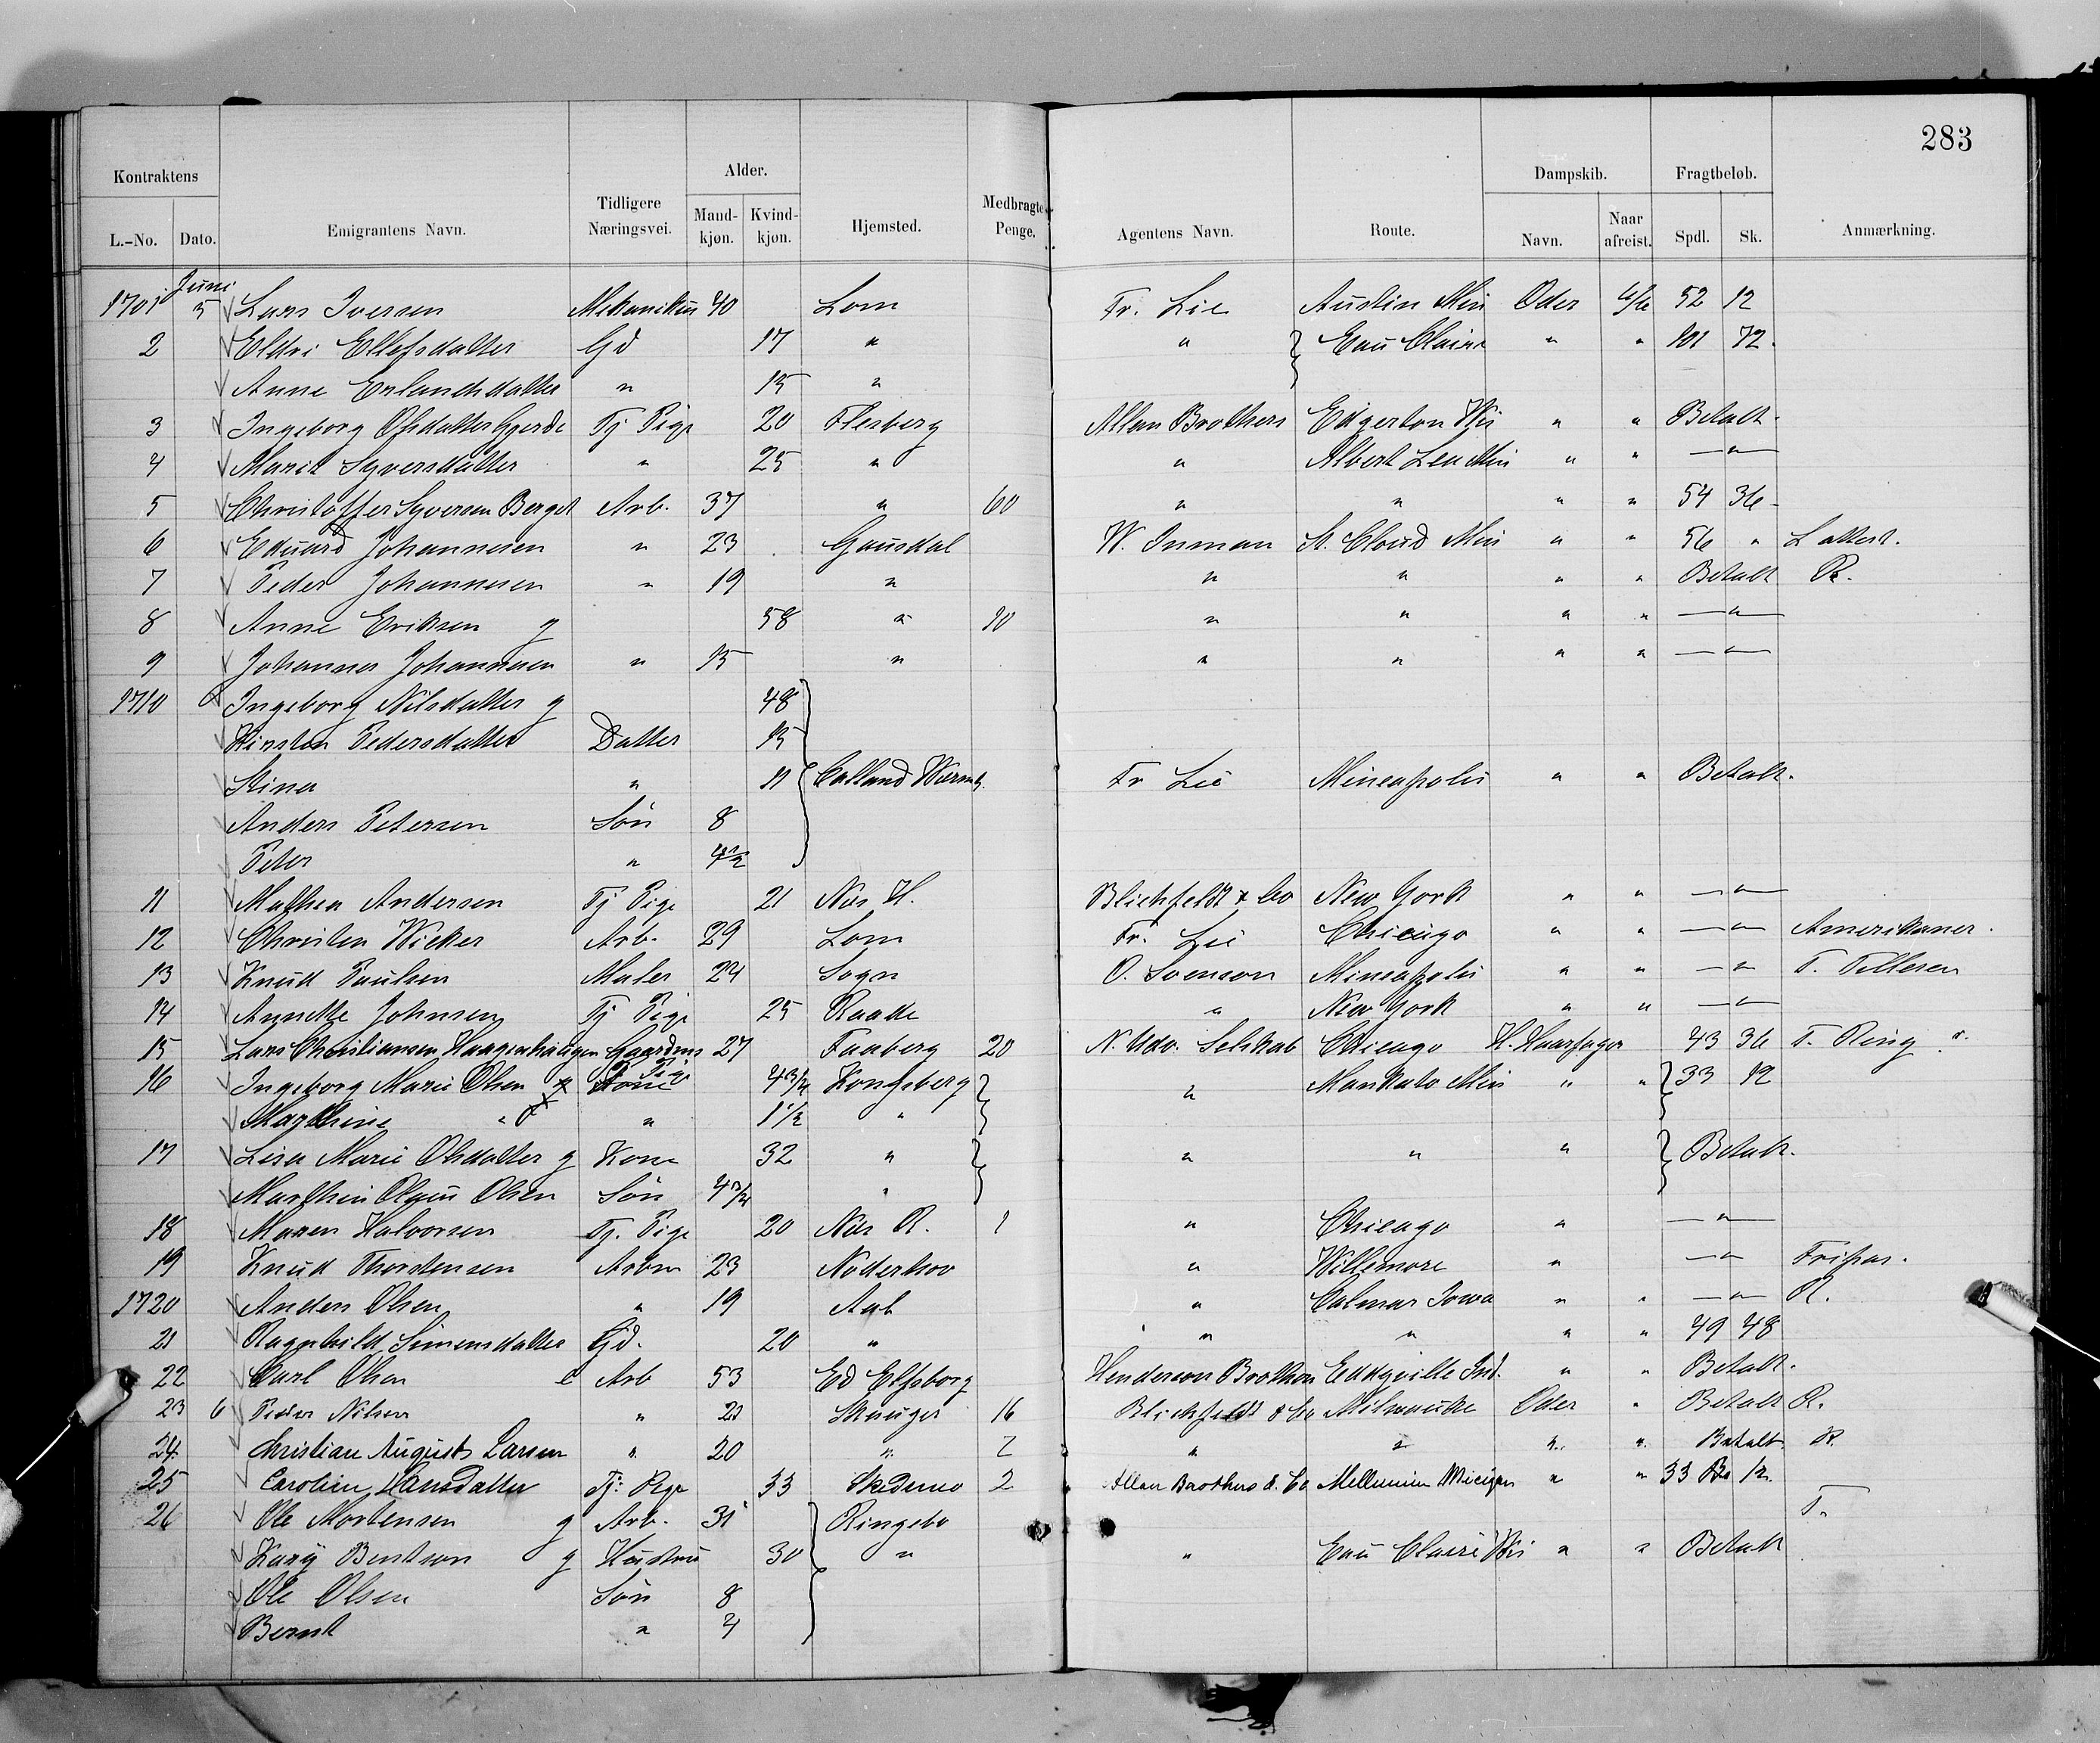 283
Kontraktens Emigrantens Navn. Tidligere Næringsvei. Alder. Hjemsted. Medbragte Penge. Agentens Navn. Route. Dampskib. Fragtbeløb. Anmærkning.
L.-No. Dato. Mand-kjøn. Kvind-kjøn. Navn. Naar afreist. Spdl. Sk.
Juni
1701 5 Lars Iversen 40 Lom Fr. Lie Austin Min Oder 6/6 52 12
2 Eldri Ellefsdatter Gd 17 " " Eau Claire " " 101 72.
Anne Erlandsdatter " 15 "
3 Ingeborg Olsdatter Gjerde Tj Pige 20 Flesberg Allan Brothers Edgerton Wis " " Betalt.
4 Marit Syversdatter " 25 " " Albert Lea Min " " — " —
5 Christoffer Syversen Berget Arb. 37 " 60 " " " " 54 36
6 Eduard Johannesen " 23 Gausdal W. Inman St. Cloud Min " " 56 "
7 Peder Johannesen " 19 " " " " " Betalt R.
8 Anne Eriksen g 58 " 10 " " " " — " —
9 Johannes Johannesen " 15 " " " " " — " —
1710 Ingeborg Nilsdatter g 48
Kirsten Pedersdatter Datter 15
Stina " 11 Fr Lie Mineapolis " " Betalt.
Anders Petersen Søn 8
Peter " 4 1/2
11 Mathea Andersen Tj Pige 21 Næs H. Blichfeldt & Co New York " " — " —
12 Christen Wicker Arb. 29 Lom Fr. Lie Chicago " " — " — Amerikaner.
13 Knud Paulsen Maler 24 Sogn O. Svenson Mineapolis " " — " — T. Tellesen
14 Annette Johnsen Tj Pige 25 Raade " New York " " — " —
15 Lars Christiansen 27 Faaberg 20 N. Udv. Selskab Chicago H. Haarfager 43 36 T. Ring
16 Ingeborg Marie Olsen Pige Kongsberg " Mankato Min " " 33 12
Marthine " " 1 1/2 "
17 Lisa Marie Olsdatter g Kone 32 " " " " Betalt.
Marthin Olsen Søn "
18 Maren Halvorsen Tj. Pige 20 Næs R. 1 " Chicago " — " —
19 Knud Thorstensen Arbm 23 Noderhov " Willemore " — " — Fripas.
1720 Anders Olsen " 19 Aal " Calmar Iowa " " — " — R.
21 Ragnhild Simensdatter Gd. 20 " " " " " 49 48
22 Carl Olsen e Arb 53 Ed Elfsborg Henderson Brothers Eddyville Ind. " " Betalt.
23 6 Peder Nilsen " 21 Skauger 16 Blichfeldt & Co Milwaukee Oder " Betalt R.
24 Christian August Larsen " 20 " 7 " " " " Betalt R.
25 Caroline Hansdatter Tj: Pige 33 Skedsmo 2 Allan Brothers & Co " " 33 12
26 Ole Mortensen g Arb. 31 Ringebo T.
Kary Berntsen g Hustru 30 " " Eau Claire Wis " " Betalt
Ole Olsen Søn 8
Bernt " 4